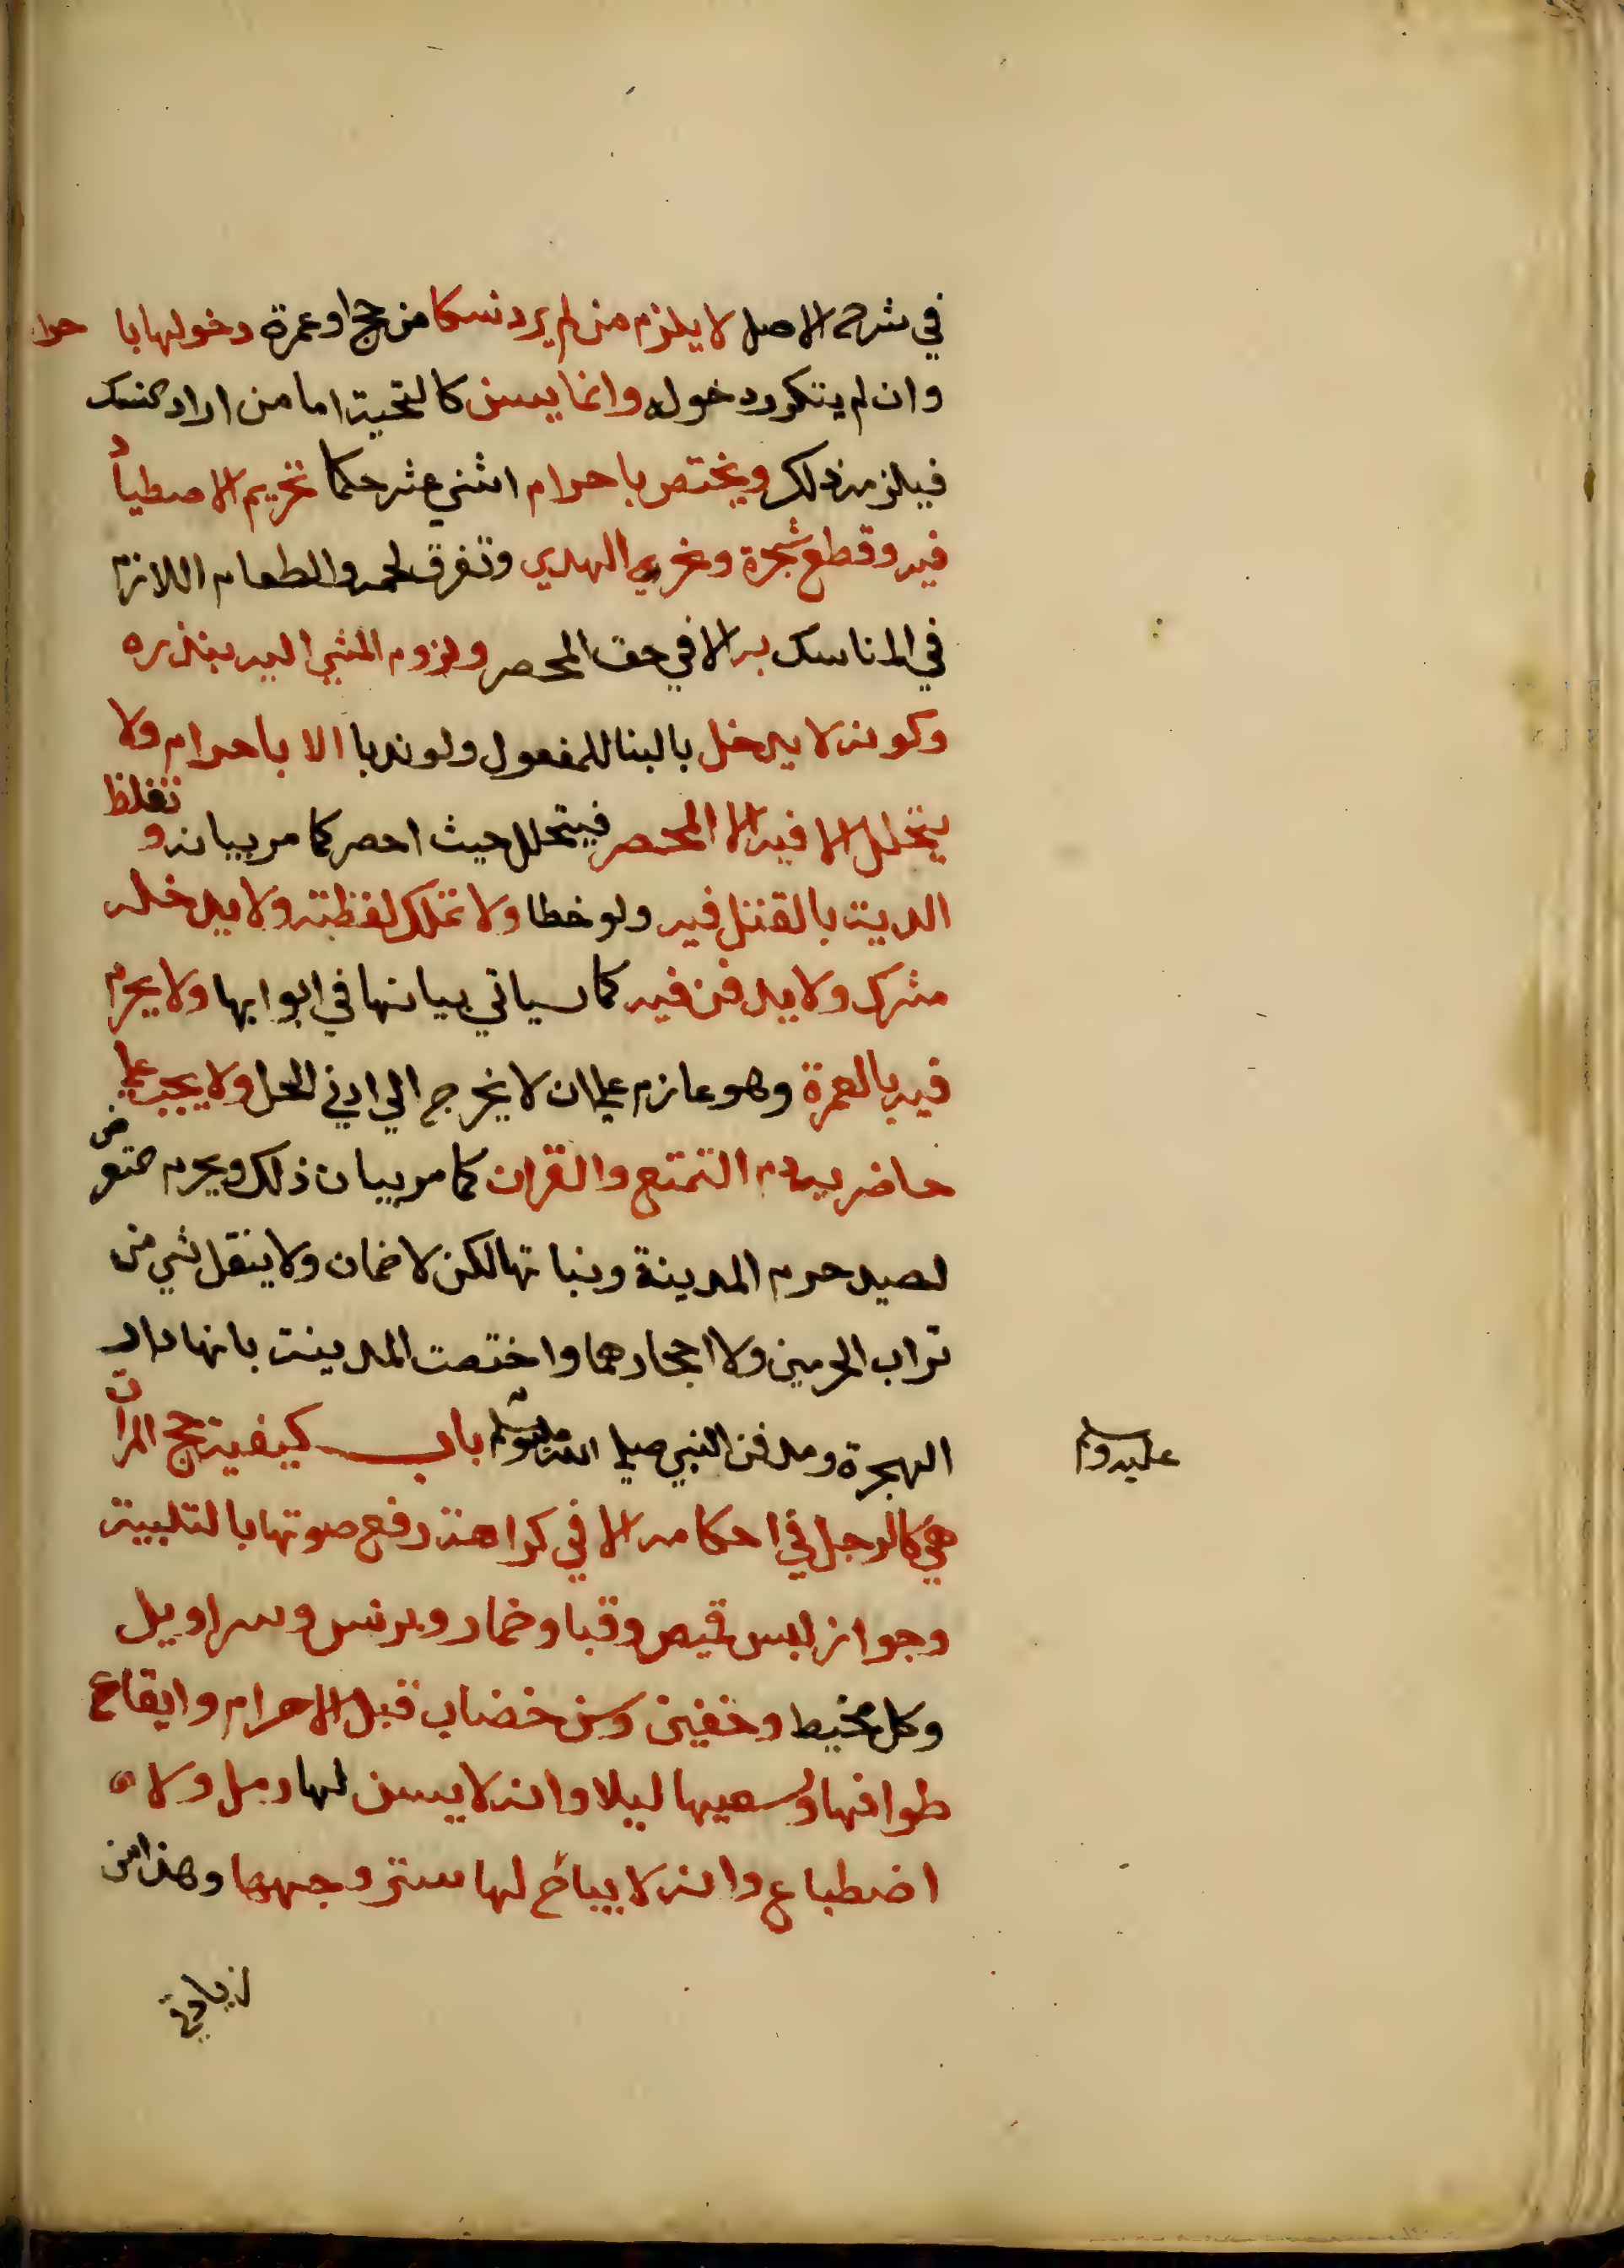 في شرح الاصل لا يلزم من لم يرد نسكا من حج او عمرة دخولها با حرا
وان لم يتكرر دخوله وانما يسن كالتحية اما من اراد النسك
فيلزمه ذلك ويختص باحرام اثني عشر حكما تحريم الاصطياد
فيه وقطع شجرة ونحر الهدي وتفرق لحمه والطعام اللازم
في المناسك به الا في حق المحصر ولزوم المشي اليه بنذره
وكونه لا يدخل بالبنا للمفعول ولو ندبا الا باحرام ولا
يتحلل الا فيه الا المحصر فيتحلل حيث احصر كما مر بيانه و تغلظ
الدية بالقتل فيه ولو خطا ولا تملك لقطته ولا يدخله
مشرك ولا يدفن فيه كما سياتي بيانها في ابوابها ولا يحرم
فيه بالعمرة وهو عازم على ان لا يخرج الي ادني الحل ولا يجب على
حاضريه دم التمتع والقران كما مر بيان ذلك ويحرم التعرض
لصيد حرم المدينة ونباتها لكن لا ضمان ولا ينقل شي من
تراب الحرمين ولا احجارهما واختصت المدينة بانها دار
الهجرة ومدفن النبي صلى الله عليه وسلم باب كيفية حج المراة
عليه وسلم
هي كالرجل في احكامه الا في كراهة رفع صوتها بالتلبية
وجواز لبس قميص وقبا وخمار وبرنس وسراويل
وكل مخيط وخفين وسن خضاب قبل الاحرام وايقاع
طوافها وسعيها ليلا وانه لا يسن لها رمل ولا
اضطباع وانه لا يباح لها ستر وجهها وهذا من
زيادته